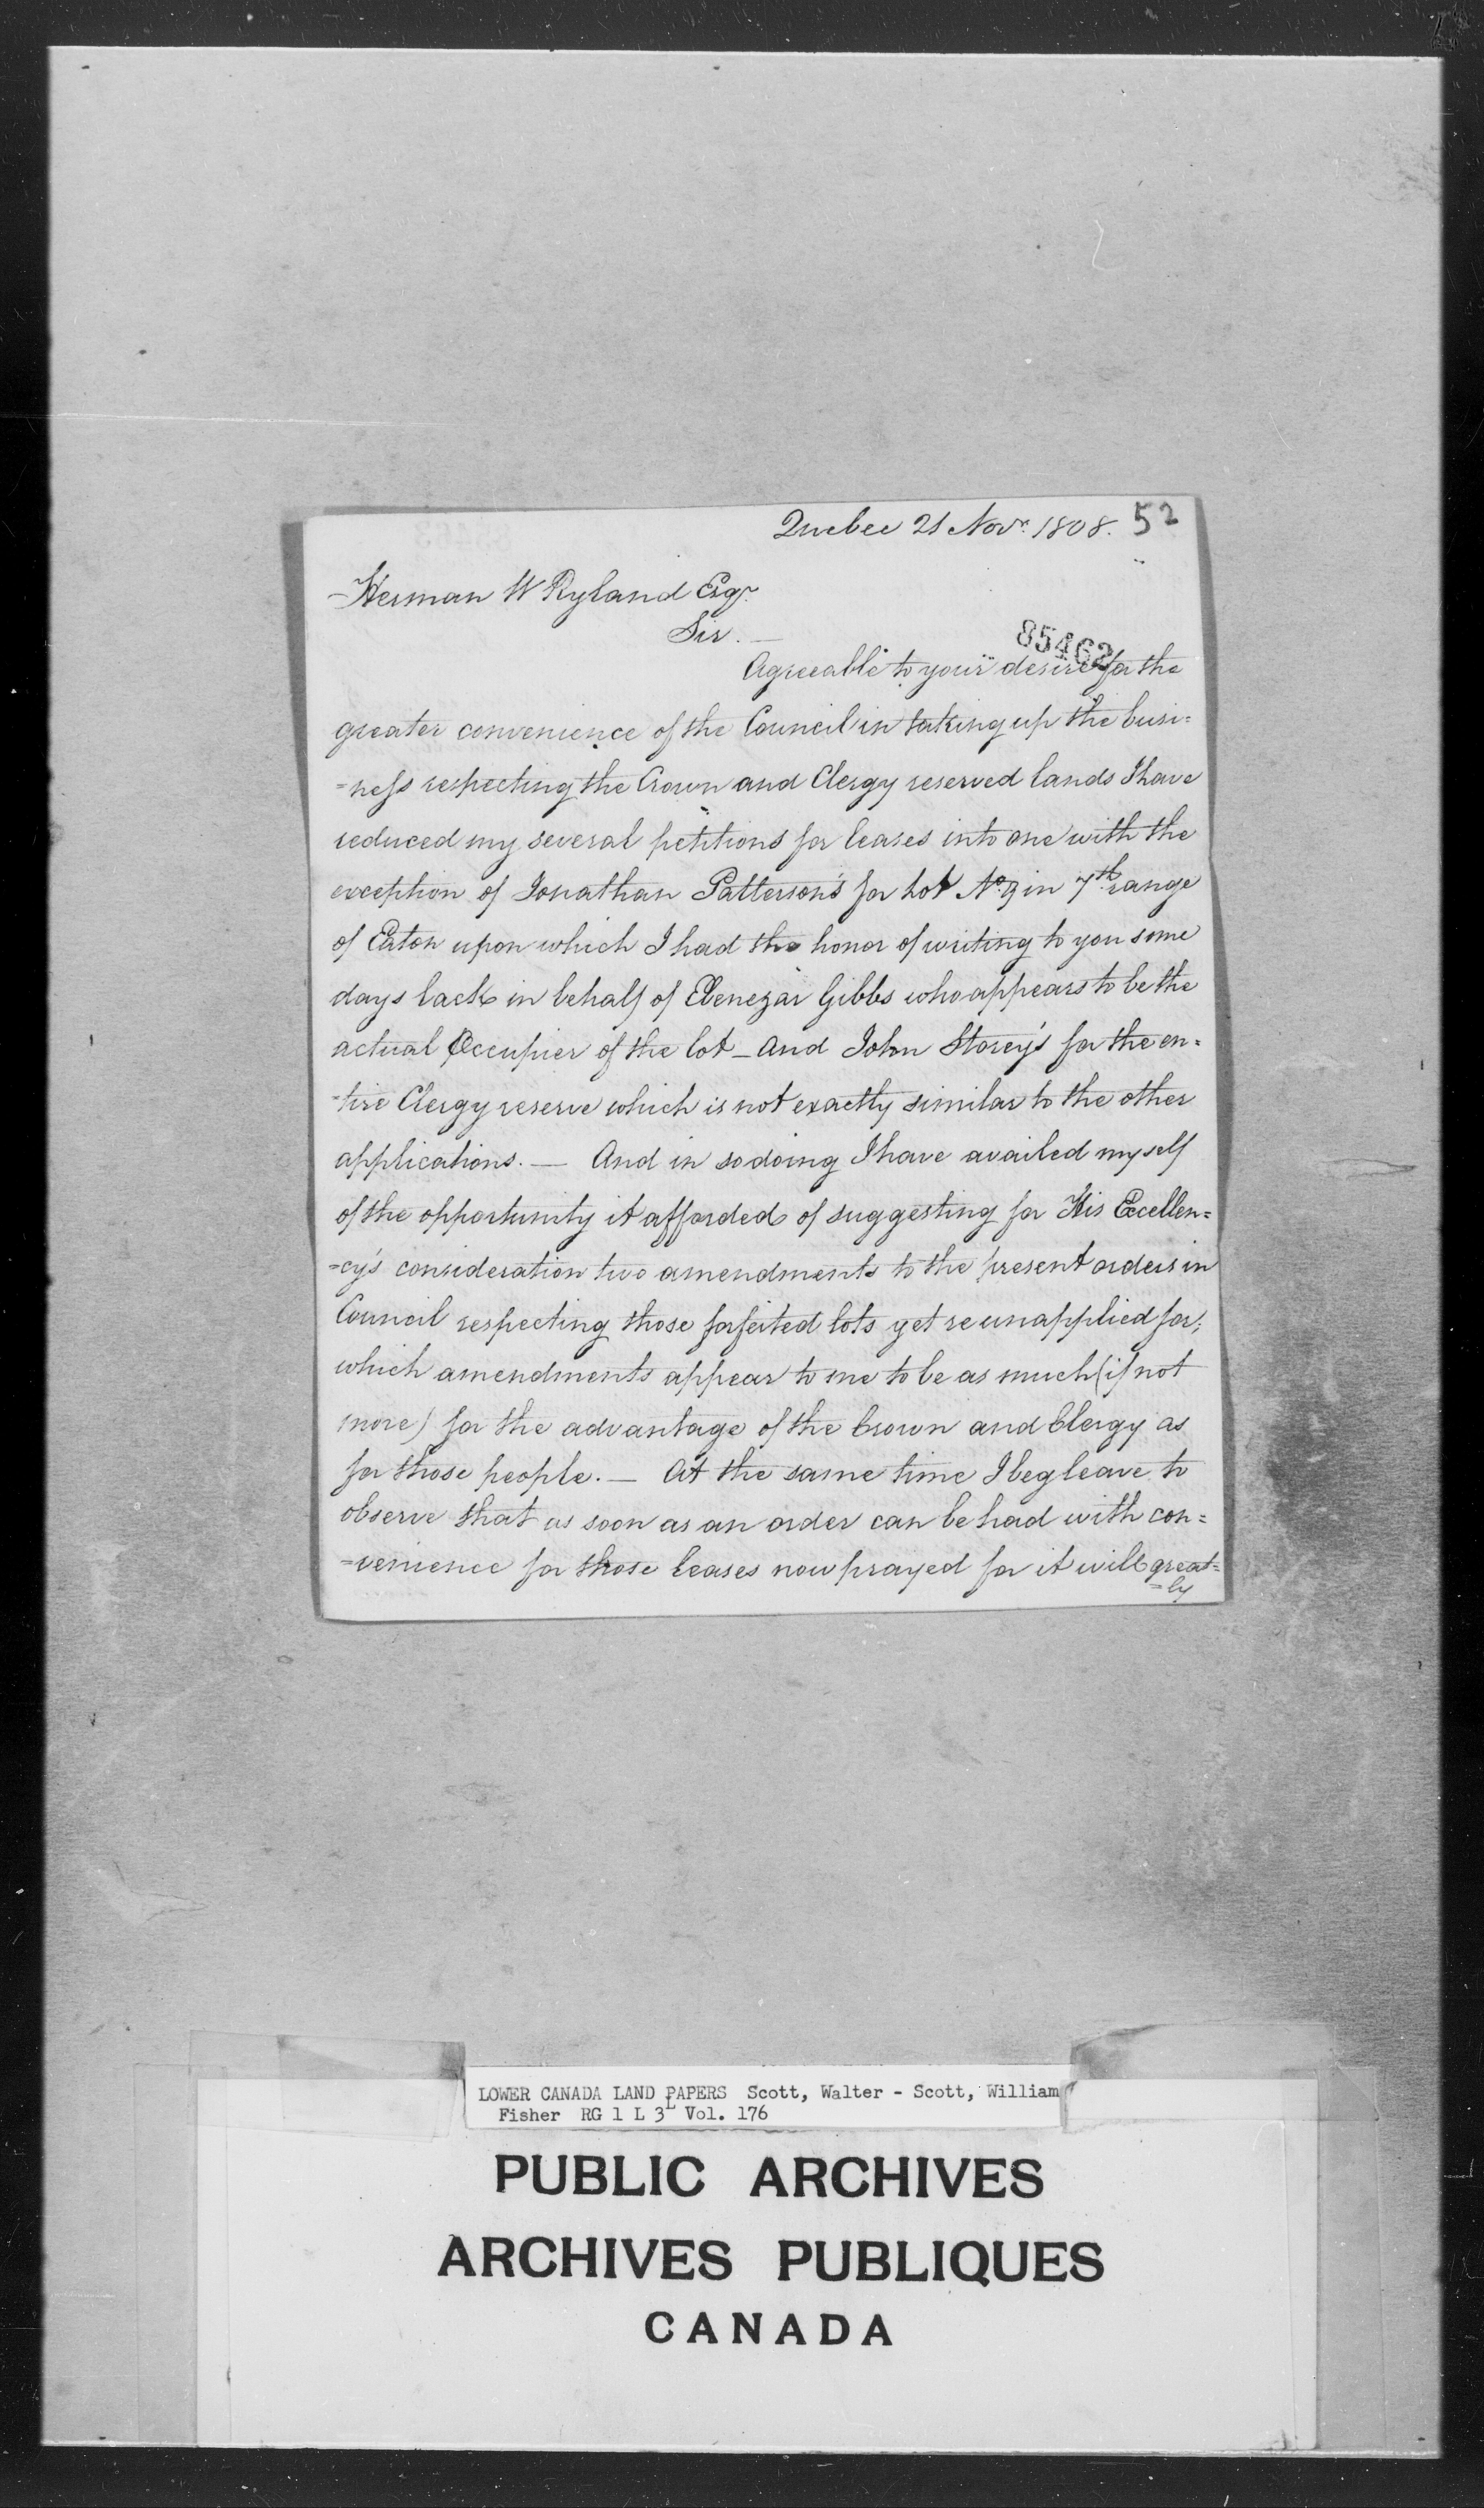 Quebec 21 Novr. 1808. 52
Herman W Ryland Esqr.
Sir. —
85462
Agreeable to your desire for the
greater convenience of the Council in taking up the busi=
=ness respecting the Crown and Clergy reserved lands I have
reduced my several petitions for leases into one with the
exception of Jonathan Patterson's for Lot No. 9 in 7th. range
of Eaton upon which I had the honor of writing to you some
days back in behalf of Ebenezar Gibbs who appears to be the
actual Occupier of the lot — and John Storey's for the en=
=tire Clergy reserve which is not exactly similar to the other
applications. — And in so doing I have availed myself
of the opportunity it afforded of suggesting for His Excellen=
=cy's consideration two amendments to the present orders in
Council respecting those forfeited lots yet re unapplied for;
which amendments appear to me to be as much (if not
more) for the advantage of the Crown and Clergy as
for those people. — At the same time I beg leave to
observe that as soon as an order can be had with con=
=venience for those leases now prayed for it will great=
=ly
LOWER CANADA LAND PAPERS Scott, Walter - Scott, William
Fisher RG 1 L 3L Vol. 176
PUBLIC ARCHIVES
ARCHIVES PUBLIQUES
CANADA